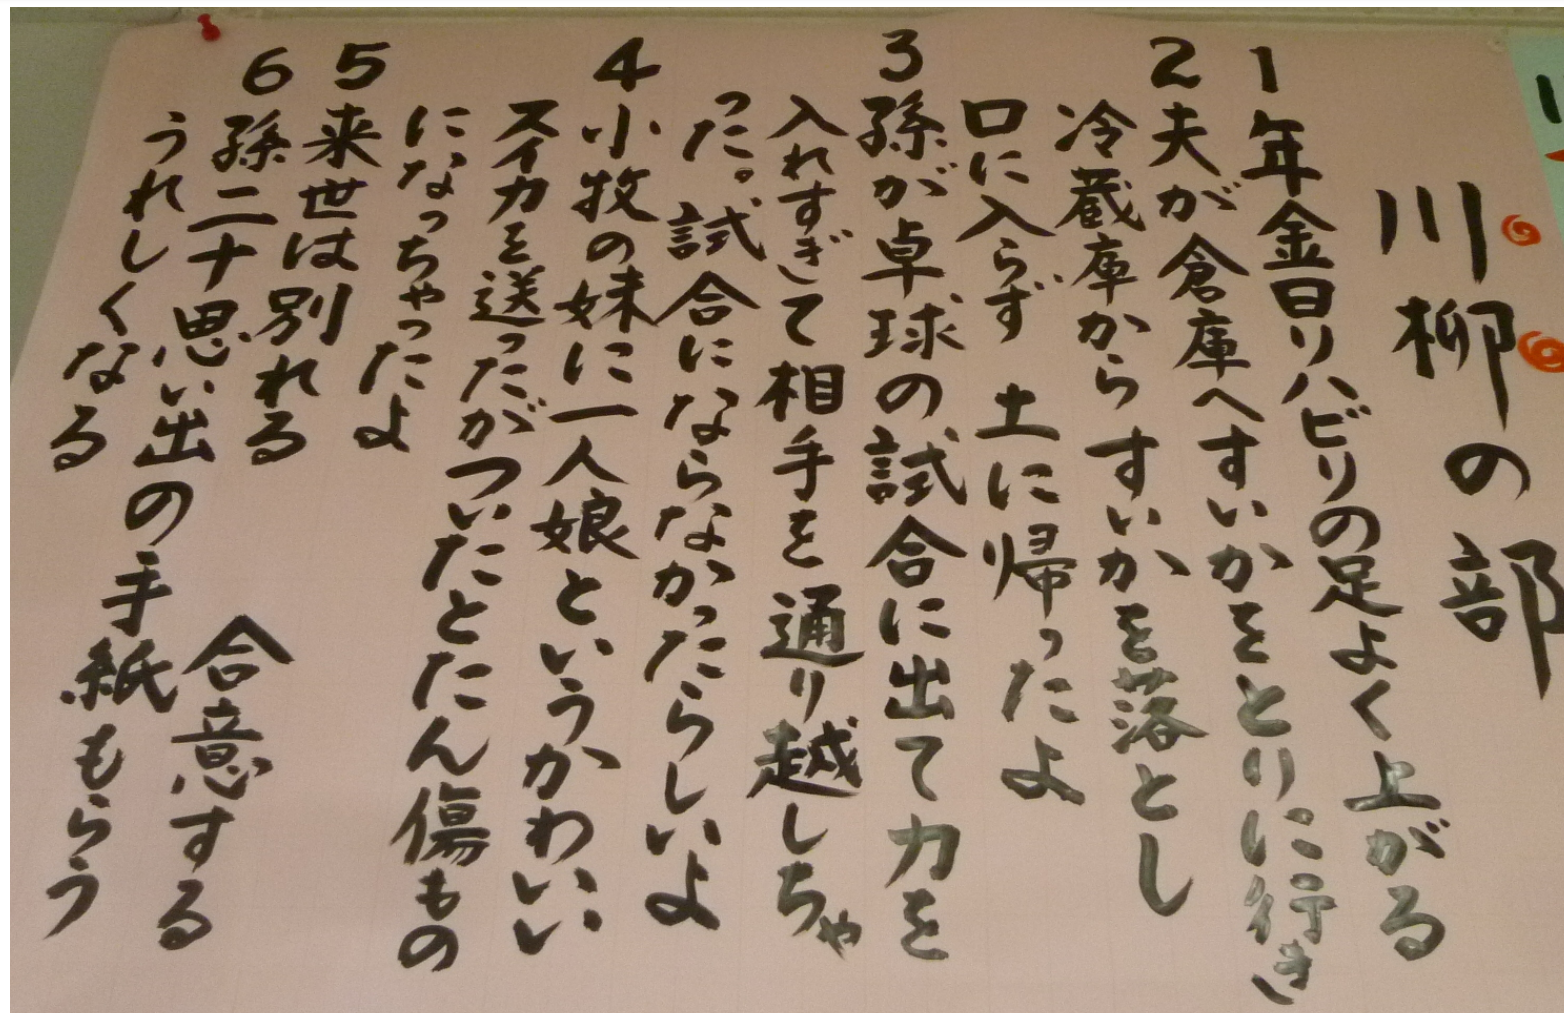 川柳の部
1 年金日リハビリの足よく上がる
2 夫が倉庫へすいかをとりに行き
冷蔵庫からすいかを落とし
口に入らず 土に帰ったよ
3 孫が卓球の試合に出て力を
入れすぎて相手を通り越しちゃ
った。試合にならなかったらしいよ
4 小牧の妹に一人娘というかわいい
スイカを送ったがついたとたん傷もの
になっちゃったよ
5 来世は別れる 合意する
6 孫二十思い出の手紙もらう
うれしくなる